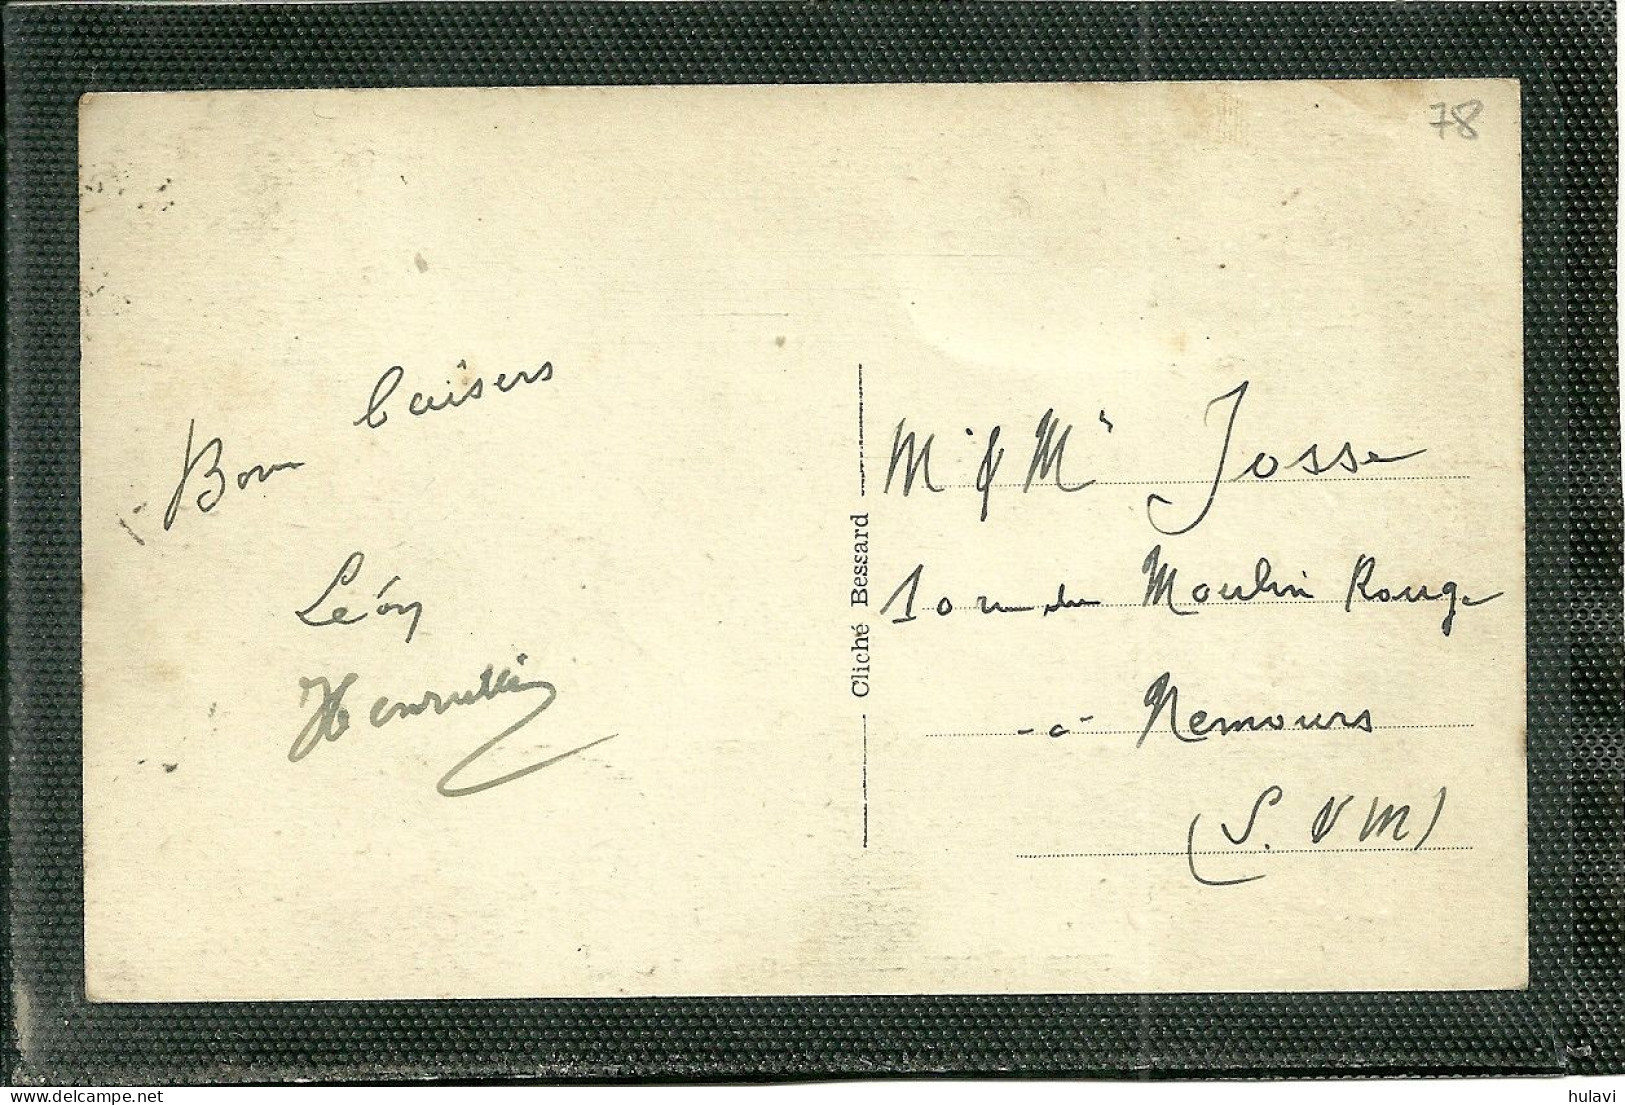 78
Bons baisers
Léon
Henriette
Cliché Bessard
Mr & Me Josse
10 rue du Moulin Rouge
-à- Nemours
(S. & M)
delcampe.net
hulavi